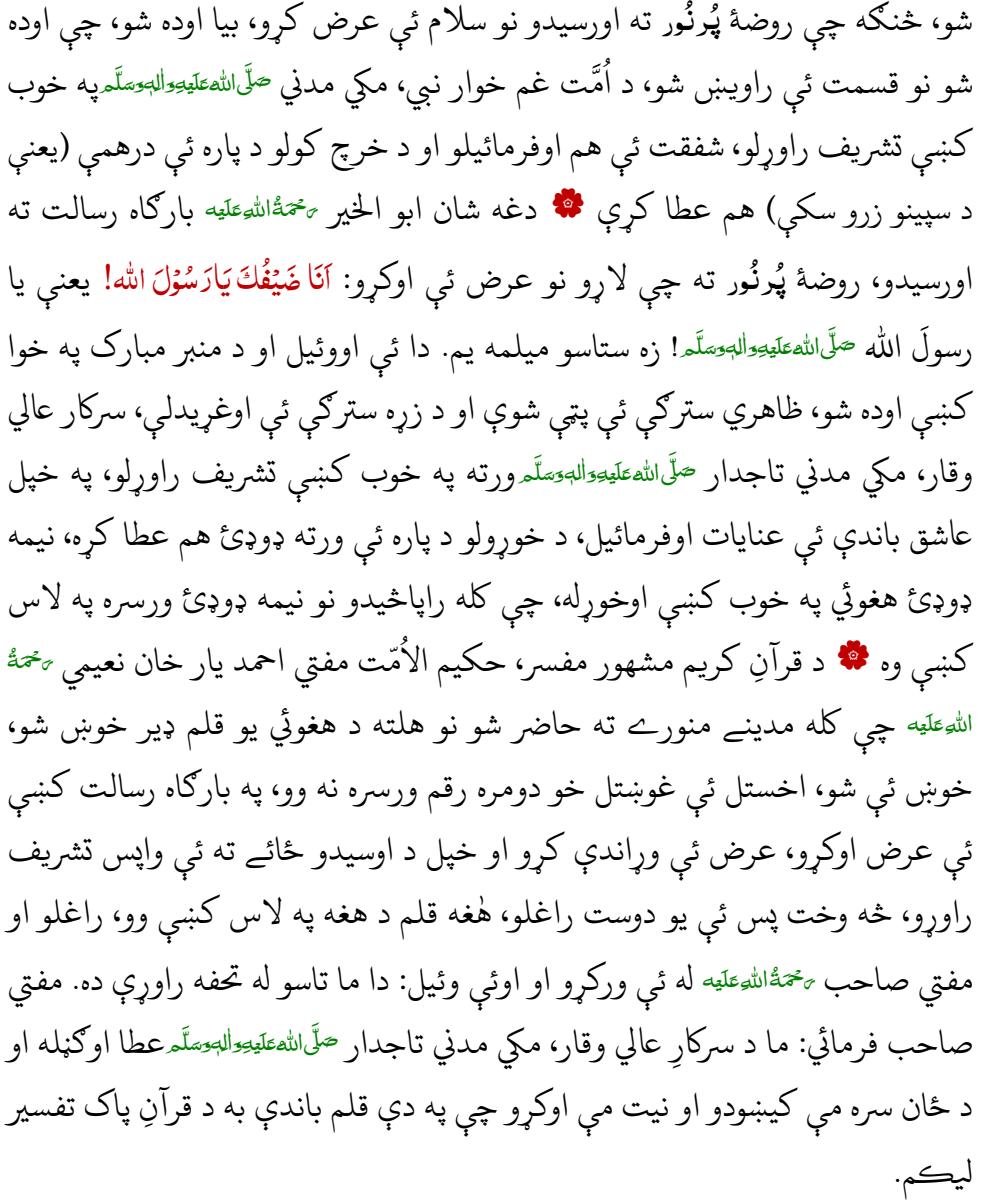 شو، څنګه چې روضهٔ پُرنُور ته اورسيدو نو سلام ئې عرض کړو، بيا اوده شو، چې اوده
شو نو قسمت ئې راويښ شو، د اُمَّت غم خوار نبي، مکي مدني صَلَّى اللهُ عَلَيْهِ وَاٰلِهٖ وَسَلَّم په خوب
کښې تشريف راوړلو، شفقت ئې هم اوفرمائيلو او د خرچ کولو د پاره ئې درهمې (يعنې
د سپينو زرو سکې) هم عطا کړې 🏵 دغه شان ابو الخير رَحْمَةُ اللهِ عَلَيْه بارګاه رسالت ته
اورسيدو، روضهٔ پُرنُور ته چې لاړو نو عرض ئې اوکړو: اَنَا ضَيْفُكَ يَارَسُوْلَ الله! يعنې يا
رسولَ الله صَلَّى اللهُ عَلَيْهِ وَاٰلِهٖ وَسَلَّم! زه ستاسو ميلمه يم. دا ئې اووئيل او د منبر مبارک په خوا
کښې اوده شو، ظاهري سترګې ئې پټې شوې او د زړه سترګې ئې اوغړيدلې، سرکار عالي
وقار، مکي مدني تاجدار صَلَّى اللهُ عَلَيْهِ وَاٰلِهٖ وَسَلَّم ورته په خوب کښې تشريف راوړلو، په خپل
عاشق باندې ئې عنايات اوفرمائيل، د خوړولو د پاره ئې ورته ډوډئ هم عطا کړه، نيمه
ډوډئ هغوئي په خوب کښې اوخوړله، چې کله راپاڅيدو نو نيمه ډوډئ ورسره په لاس
کښې وه 🏵 د قرآنِ کريم مشهور مفسر، حکيم الاُمّت مفتي احمد يار خان نعيمي رَحْمَةُ
اللهِ عَلَيْه چې کله مدينے منورے ته حاضر شو نو هلته د هغوئي يو قلم ډير خوښ شو،
خوښ ئې شو، اخستل ئې غوښتل خو دومره رقم ورسره نه وو، په بارګاه رسالت کښې
ئې عرض اوکړو، عرض ئې وړاندې کړو او خپل د اوسيدو ځائے ته ئې واپس تشريف
راوړو، څه وخت پس ئې يو دوست راغلو، هٰغه قلم د هغه په لاس کښې وو، راغلو او
مفتي صاحب رَحْمَةُ اللهِ عَلَيْه له ئې ورکړو او اوئې وئيل: دا ما تاسو له تحفه راوړې ده. مفتي
صاحب فرمائي: ما د سرکارِ عالي وقار، مکي مدني تاجدار صَلَّى اللهُ عَلَيْهِ وَاٰلِهٖ وَسَلَّم عطا اوګڼله او
د ځان سره مې کيښودو او نيت مې اوکړو چې په دې قلم باندې به د قرآنِ پاک تفسير
ليکم.